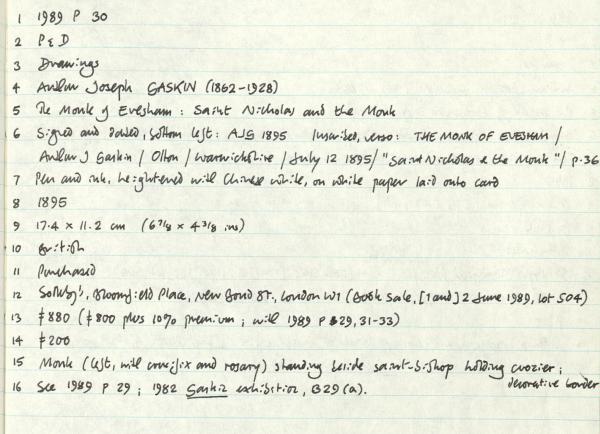 1 1989 P 30
2 P & D
3 Drawings
4 Arthur Joseph GASKIN (1862-1928)
5 The Monk of Evesham : Saint Nicholas and the Monk
6 Signed and dated, bottom left: AJG 1895 Inscribed, verso: THE MONK OF EVESHAM /
Arthur J Gaskin / Olton / Warwickshire / July 12 1895 / "Saint Nicholas & the Monk" / p.36
7 Pen and ink, heightened with Chinese white, on white paper laid onto card
8 1895
9 17.4 x 11.2 cm (6 7/8 x 4 3/8 ins)
10 British
11 Purchased
12 Sotheby's, Bloomfield Place, New Bond St., London W1 (Book Sale, [1 and] 2 June 1989, Lot 504)
13 £880 (£800 plus 10% premium ; with 1989 P 29, 31-33)
14 £200
15 Monk (left, with crucifix and rosary) standing beside saint-bishop holding crozier ;
decorative border
16 See 1989 P 29 ; 1982 Gaskin exhibition, B29(a).